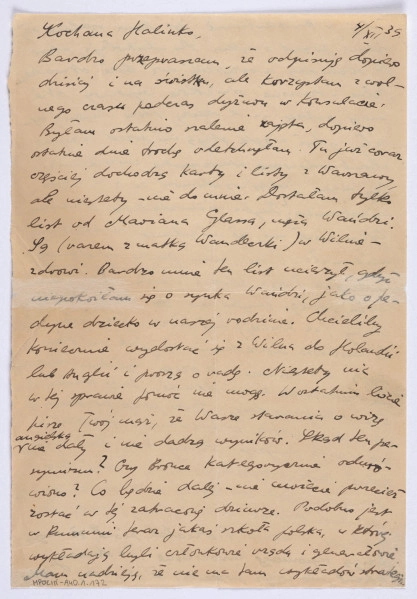 4/XII 39
Kochana Halinko,
Bardzo przepraszam, że odpisuję dopiero
dzisiaj i na świstku, ale korzystam z wol-
nego czasu podczas dyżuru w Konsulacie.
Byłam ostatnio szalenie zajęta, dopiero
ostatnie dnie trochę odetchnęłam. Tu już coraz
częściej dochodzą karty i listy z Warszawy,
ale niestety nie do mnie. Dostałam tylko
list od Mariana Glassa, męża Wandzi.
Są (razem z matką Wandeczki) w Wilnie –
zdrowi. Bardzo mnie ten list ucieszył, gdyż
niepokoiłam się o synka Wandzi, jako o je-
dyne dziecko w naszej rodzinie. Chcieliby
koniecznie wydostać się z Wilna do Holandii
lub Anglii i proszą o radę. Niestety nic
w tej sprawie pomóc nie mogę. W ostatnim liście
pisze Twój mąż, że Wasze starania o wizy
angielskie
nie dały i nie dadzą wyników. Skąd ten pe-
symizm? Czy Bronce kategorycznie odmó-
wiono? Co będzie dalej – nie możecie przecież
zostać w tej zatraconej dziurze. Podobno jest
w Rumunii teraz jakaś szkoła polska, w której
wykładają byli członkowie rządu i generałowie
Mam nadzieję, że nie ma tam wykładów strategii
MPOLIN-A40.1.172